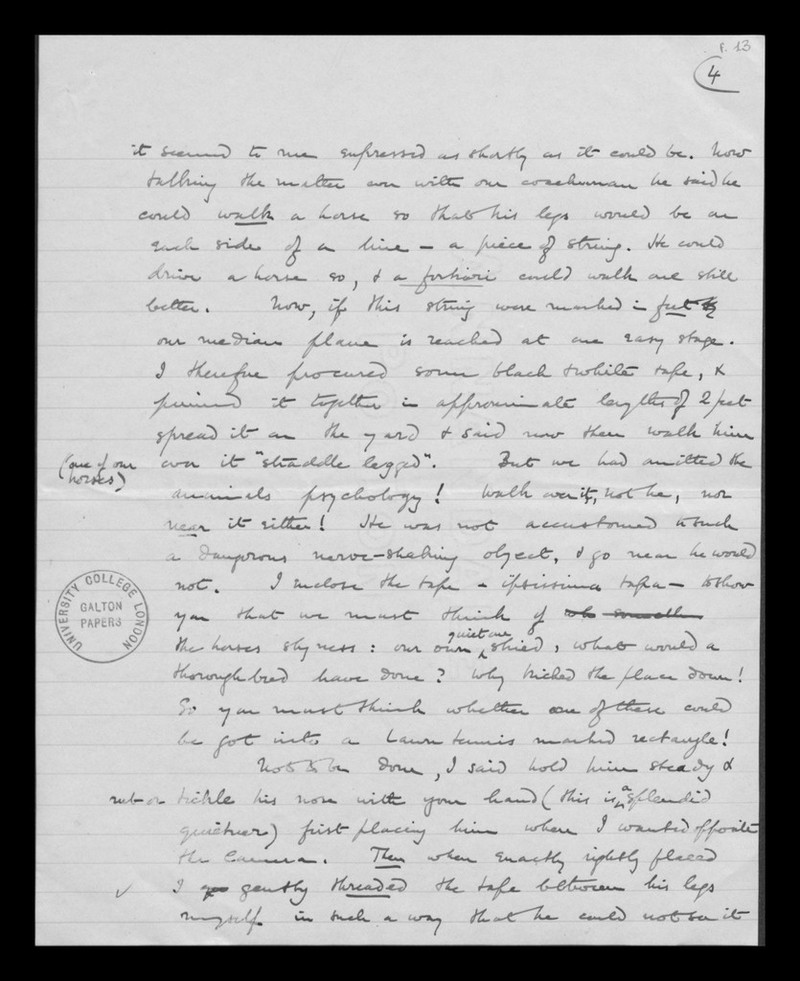 f. 13
4
it seemed to me expressed as shortly as it could be. Now
talking the matter over with our coachman he said he
could walk a horse so that his legs would be on
each side of a line – a piece of string. He could
drive a horse so, & a fortiori could walk one still
better. Now, if this string were marked in feet
our median plane is reached at one easy stage.
I therefore procured some black & white tape, &
pinned it together in approximate lengths of 2 feet
spread it on the yard & said now then walk him
(one of our horses) over it "straddle legged". But we had omitted the
animals psychology! Walk over it, not he, nor
near it either! He was not accustomed to such
a dangerous nerve-shaking object, & go near he would
not. I enclose the tape – ipsissima tapa – to show
you that we must think of
the horses shyness: our own quiet one shied, what would a
thoroughbred have done? Why kicked the place down!
So you must think whether one of these could
be got into a Lawn tennis marked rectangle!
Not to be done, I said hold him steady &
rub or tickle his nose with your hand (this is a splendid
quietner) first placing him where I wanted opposite
the Camera. Then when exactly rightly placed
✓ I gently threaded the tape between his legs
myself in such a way that he could not see it
UNIVERSITY COLLEGE LONDON
GALTON
PAPERS